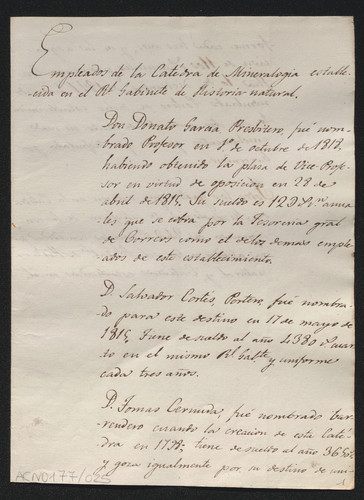 Empleados de la Catedra de Mineralogia estable-
cida en el Rl. Gabinete de Historia natural.
Don Donato Garcia, Presbitero, fué nom-
brado Profesor en 1º de octubre de 1817,
habiendo obtenido la plaza de Vice-Profe-
sor en virtud de oposicion en 28 de
abril de 1815. Su sueldo es 12 anua-
les que se cobra por la Tesoreria gral
de Correos como el de los demas emple-
ados de este establecimiento.
D. Salvador Cortés, Portero, fué nombra-
do para este destino en 17 de mayo de
1815, tiene de sueldo al año 4380 rs. cuar-
to en el mismo Rl. Gabte y uniforme
cada tres años.
D. Tomas Cernuda, fué nombrado bar-
rendero cuando la creacion de esta Cáte-
dra en 1798; tiene de sueldo al año
y goza igualmente por su destino de uni-
ACN0177/025
1